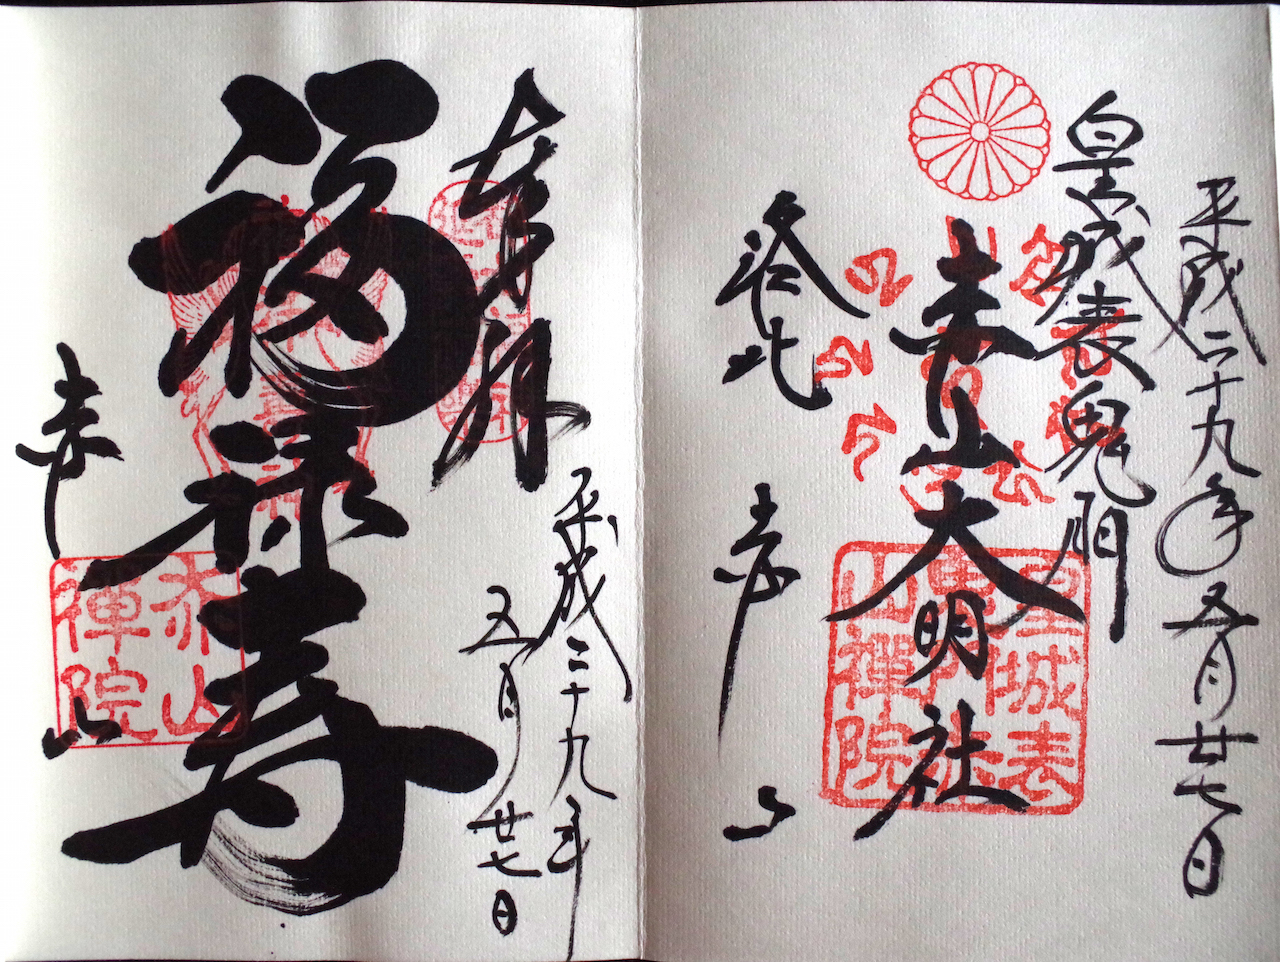 平成二十九年五月廿七日
皇城表鬼門
赤山大明社
洛北
赤山
皇城表
鬼門赤
山禅院
奉拝
平成二十九年
五月廿七日
福禄寿
赤山
赤山
禅院